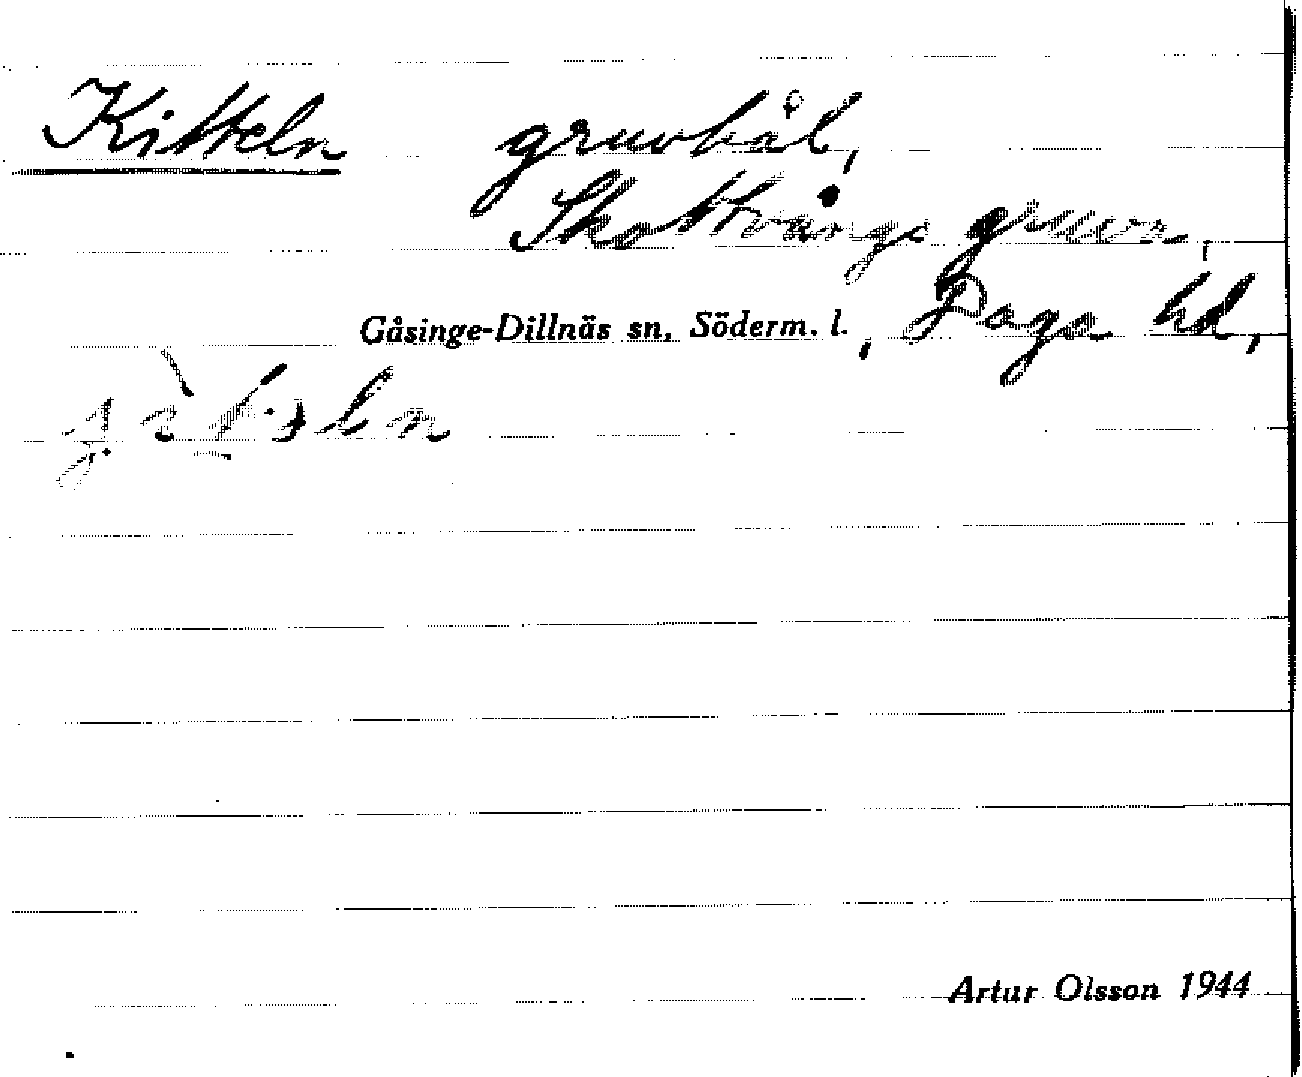 Kitteln gruvhål,
Skottvångs gruva,
Gåsinge-Dillnäs sn, Söderm. l., Daga hd,
Artur Olsson 1944